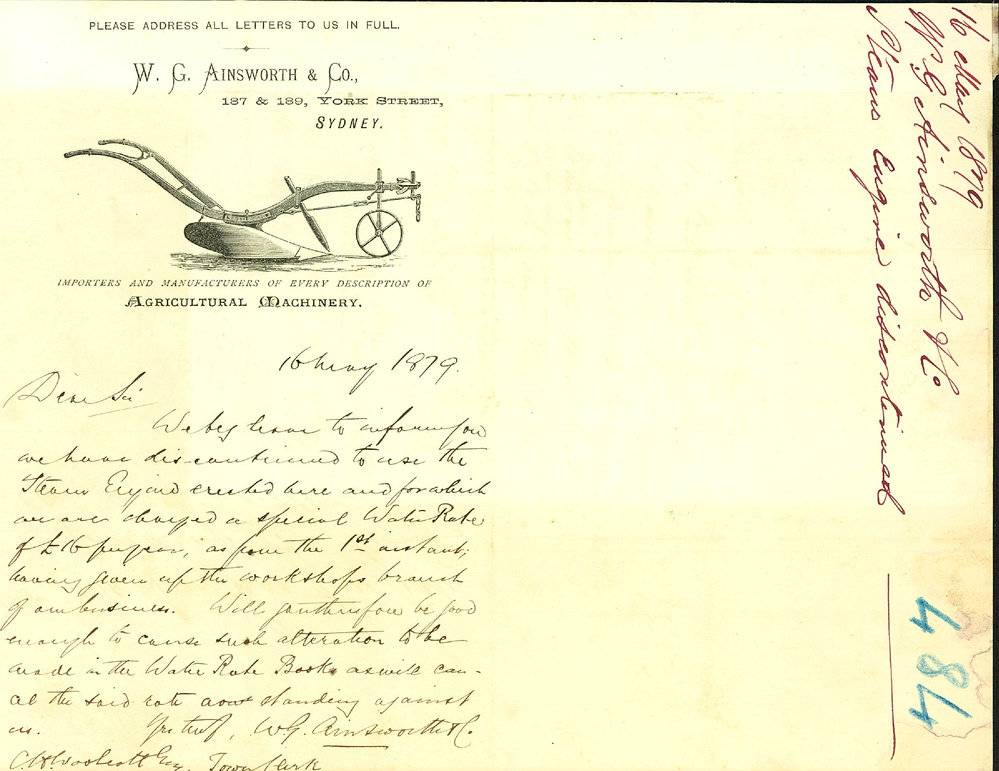 PLEASE ADDRESS ALL LETTERS TO US IN FULL.
W. G. AINSWORTH & CO.,
187 & 189, YORK STREET,
SYDNEY.
IMPORTERS AND MANUFACTURERS OF EVERY DESCRIPTION OF
AGRICULTURAL MACHINERY.
16 May 1879.
Dear Sir
We beg leave to inform you
we have discontinued to use the
Steam Engine erected here and for which
we are charged a special Water Rate
of £16 per year, as from the 1st instant;
having given up the workshops branch
of our business. Will you therefore be good
enough to cause such alteration to be
made in the Water Rate Books as will can-
cel the said rate now standing against
us. Yrs truly, W.G. Ainsworth & Co.
C.H. Woolcott Esq, Town Clerk
16 May 1879
W G Ainsworth & Co
Steam Engine discontinued
484